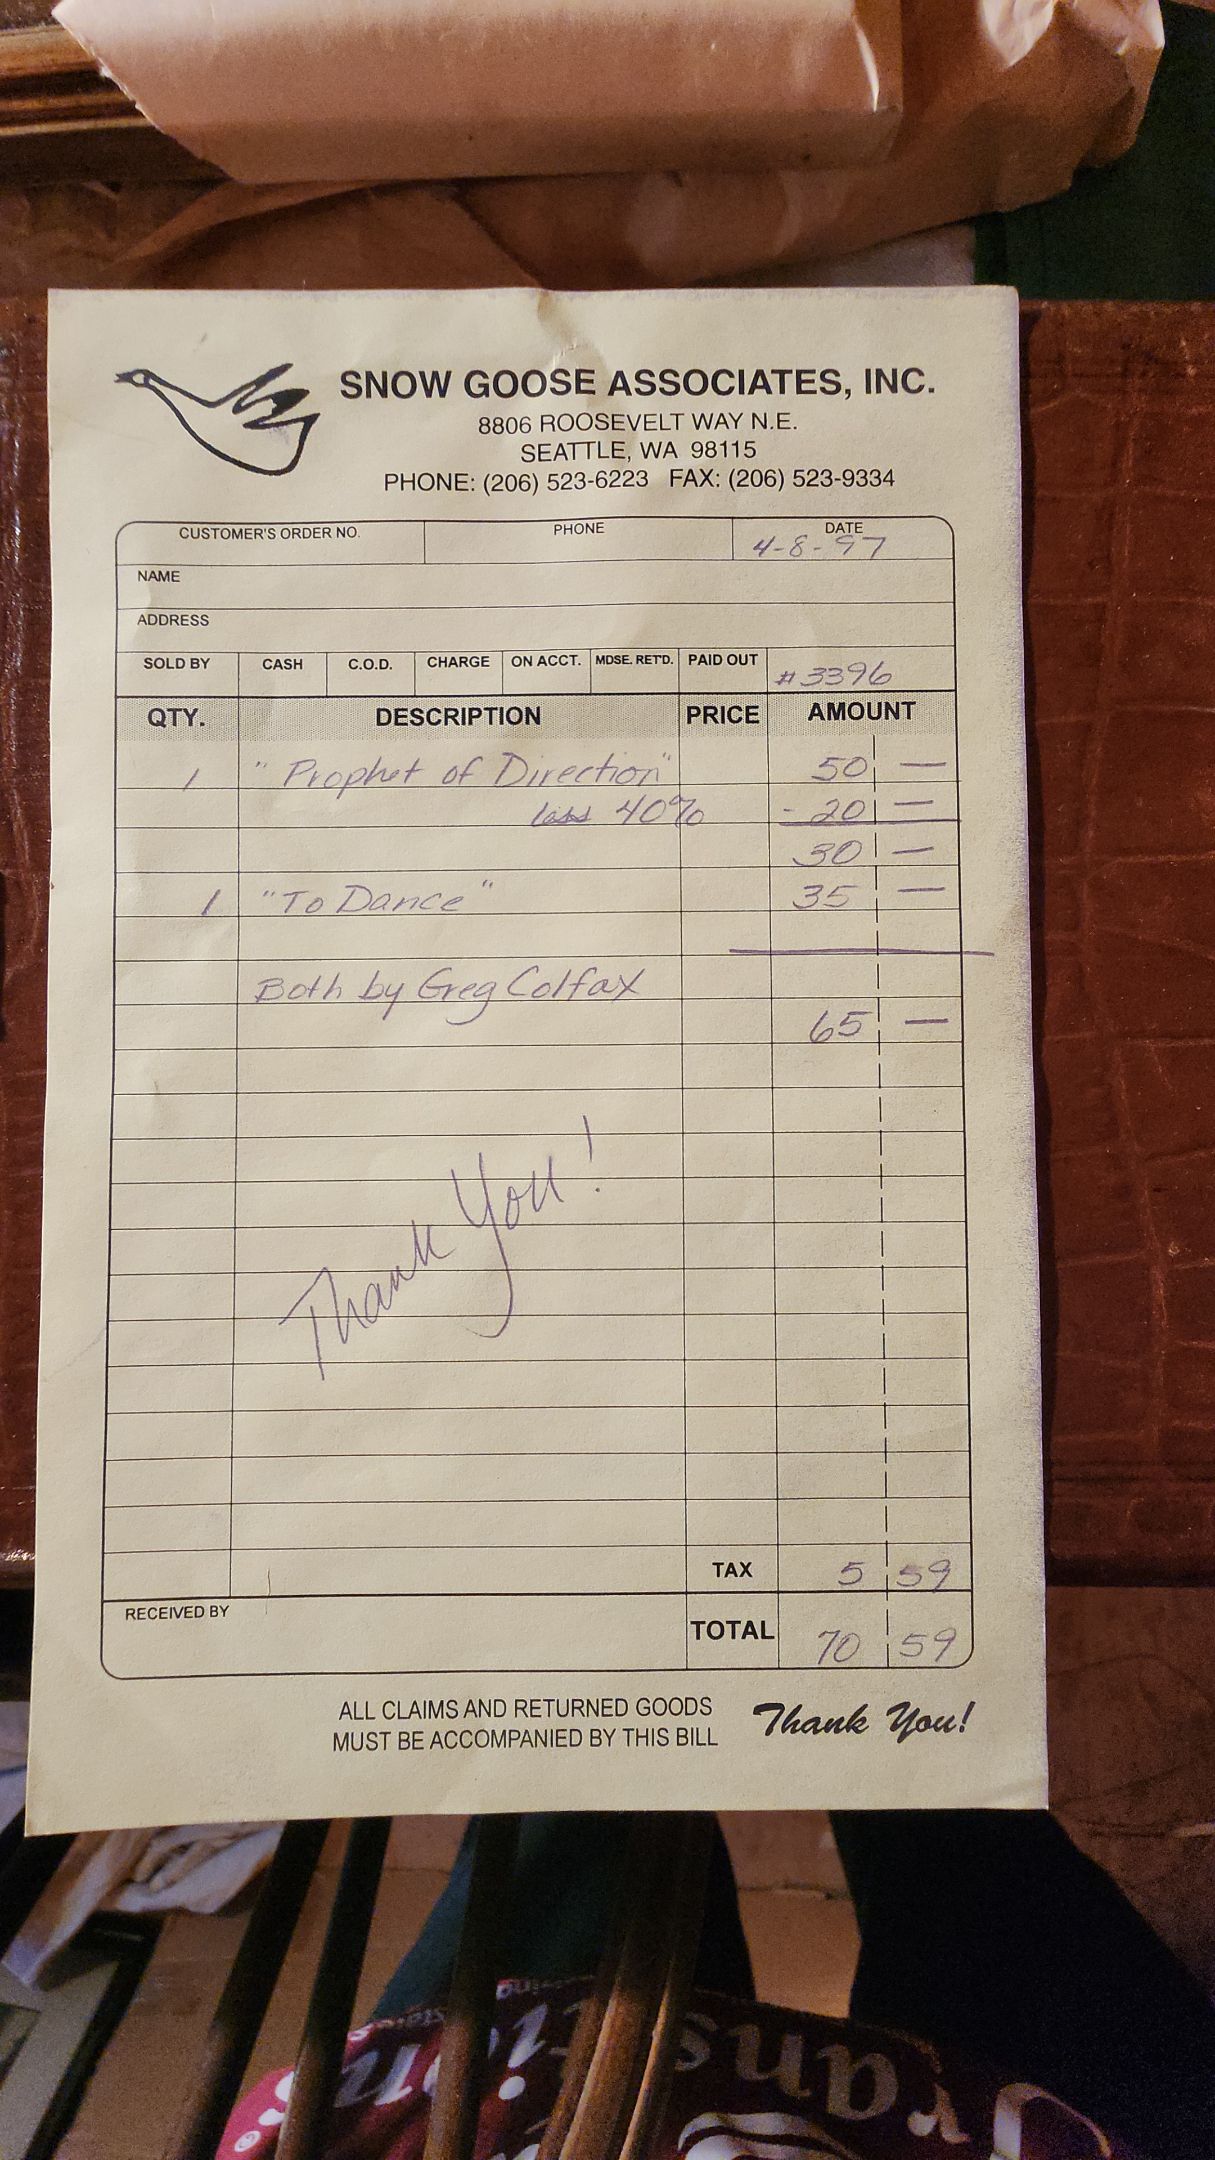 SNOW GOOSE ASSOCIATES, INC.
8806 ROOSEVELT WAY N.E.
SEATTLE, WA 98115
PHONE: (206) 523-6223 FAX: (206) 523-9334
CUSTOMER'S ORDER NO. PHONE DATE
4-8-97
NAME
ADDRESS
SOLD BY CASH C.O.D. CHARGE ON ACCT. MDSE. RET'D. PAID OUT #3396
QTY. DESCRIPTION PRICE AMOUNT
1 "Prophet of Direction" 50 —
less 40% - 20 —
30 —
1 "To Dance" 35 —
Both by Greg Colfax
65 —
Thank You!
TAX 5 59
RECEIVED BY
TOTAL 70 59
ALL CLAIMS AND RETURNED GOODS
MUST BE ACCOMPANIED BY THIS BILL
Thank You!